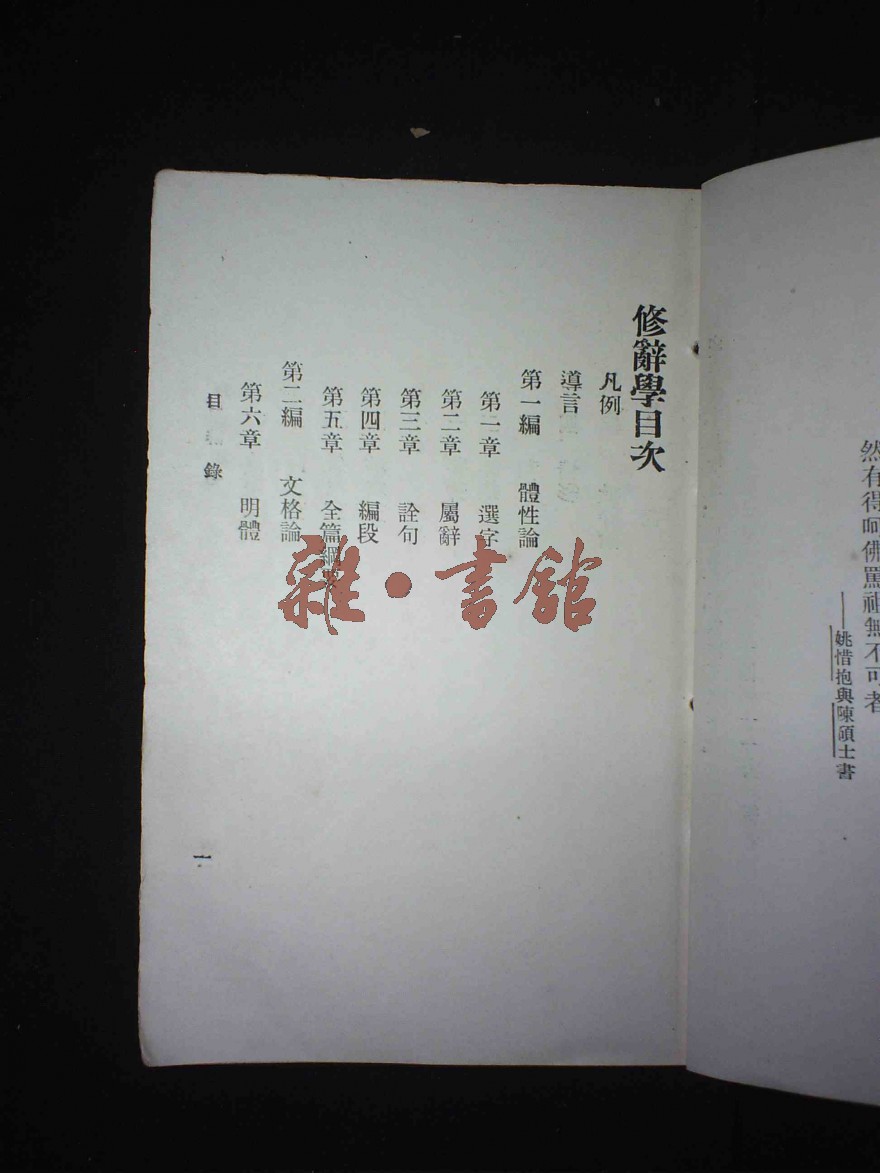 然有得呵佛罵祖無不可者
——姚惜抱與陳碩士書
修辭學目次
凡例
導言
第一編　體性論
第一章　選字
第二章　屬辭
第三章　詮句
第四章　編段
第五章　全篇綱
第二編　文格論
第六章　明體
目　錄
一
雜·書館